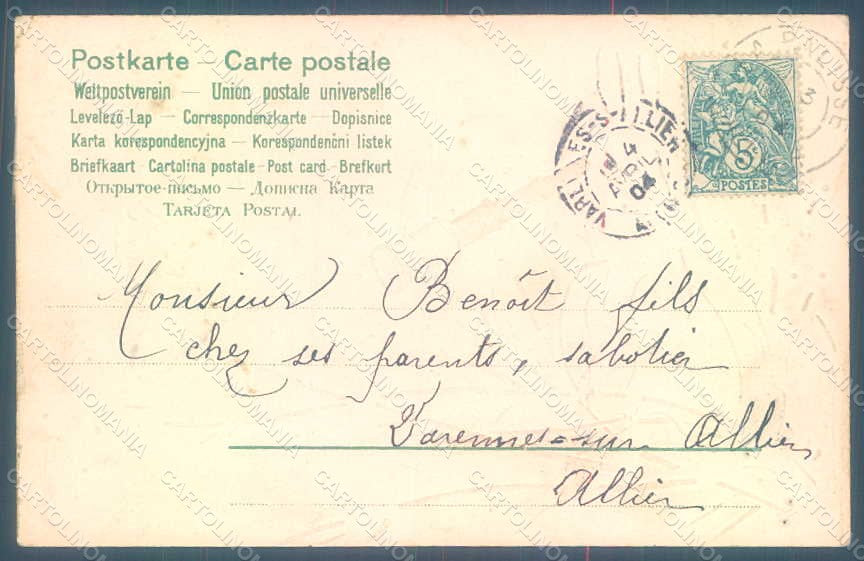 Postkarte – Carte postale
Weltpostverein – Union postale universelle
Levelező-Lap – Correspondenzkarte – Dopisnice
Karta korespondencyjna – Korespondenční listek
Briefkaart - Cartolina postale - Post card - Brefkort
Открытое письмо – Дописна Карта
TARJETA POSTAL
4
AVRIL
04
5c
POSTES
Monsieur Benoît fils
chez ses parents, sabotier
Varennes-sur Allier
Allier
CARTOLINOMANIA